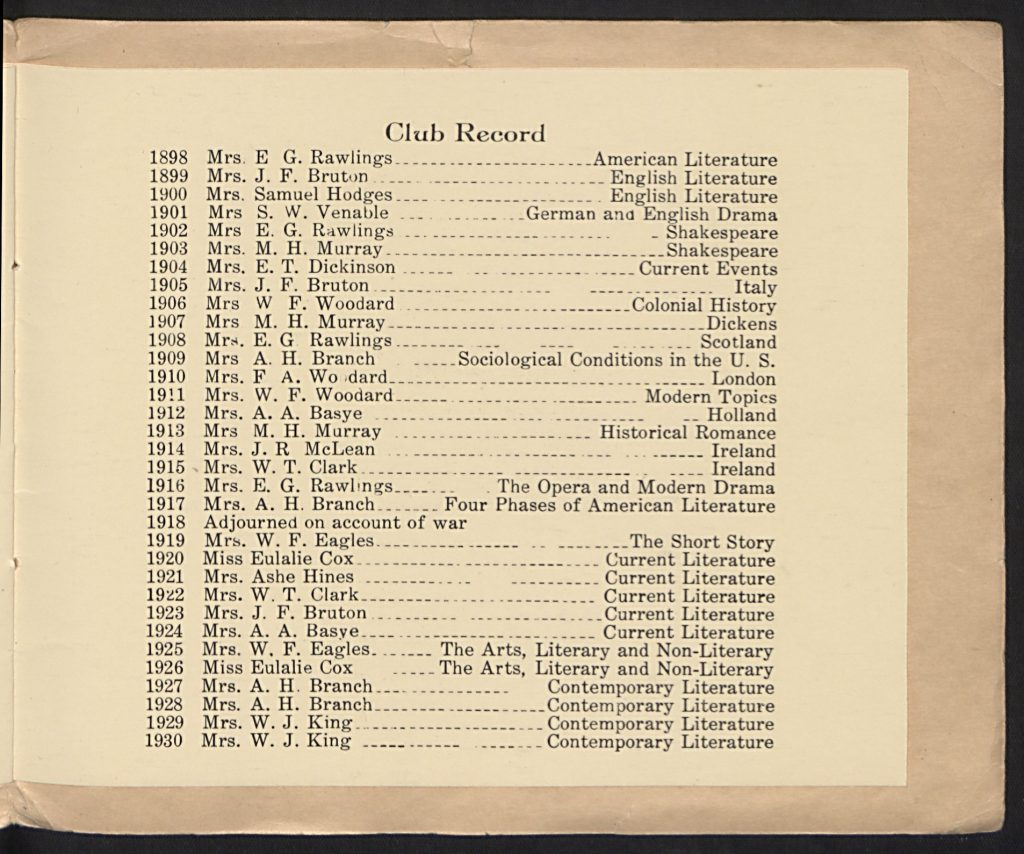 Club Record
1898 Mrs. E G. Rawlings American Literature
1899 Mrs. J. F. Bruton English Literature
1900 Mrs. Samuel Hodges English Literature
1901 Mrs S. W. Venable German and English Drama
1902 Mrs E. G. Rawlings Shakespeare
1903 Mrs. M. H. Murray Shakespeare
1904 Mrs. E. T. Dickinson Current Events
1905 Mrs. J. F. Bruton Italy
1906 Mrs W F. Woodard Colonial History
1907 Mrs M. H. Murray Dickens
1908 Mrs. E. G Rawlings Scotland
1909 Mrs A. H. Branch Sociological Conditions in the U. S.
1910 Mrs. F A. Woodard London
1911 Mrs. W. F. Woodard Modern Topics
1912 Mrs. A. A. Basye Holland
1913 Mrs M. H. Murray Historical Romance
1914 Mrs. J. R McLean Ireland
1915 Mrs. W. T. Clark Ireland
1916 Mrs. E. G. Rawlings The Opera and Modern Drama
1917 Mrs. A. H. Branch Four Phases of American Literature
1918 Adjourned on account of war
1919 Mrs. W. F. Eagles The Short Story
1920 Miss Eulalie Cox Current Literature
1921 Mrs. Ashe Hines Current Literature
1922 Mrs. W. T. Clark Current Literature
1923 Mrs. J. F. Bruton Current Literature
1924 Mrs. A. A. Basye Current Literature
1925 Mrs. W. F. Eagles The Arts, Literary and Non-Literary
1926 Miss Eulalie Cox The Arts, Literary and Non-Literary
1927 Mrs. A. H. Branch Contemporary Literature
1928 Mrs. A. H. Branch Contemporary Literature
1929 Mrs. W. J. King Contemporary Literature
1930 Mrs. W. J. King Contemporary Literature